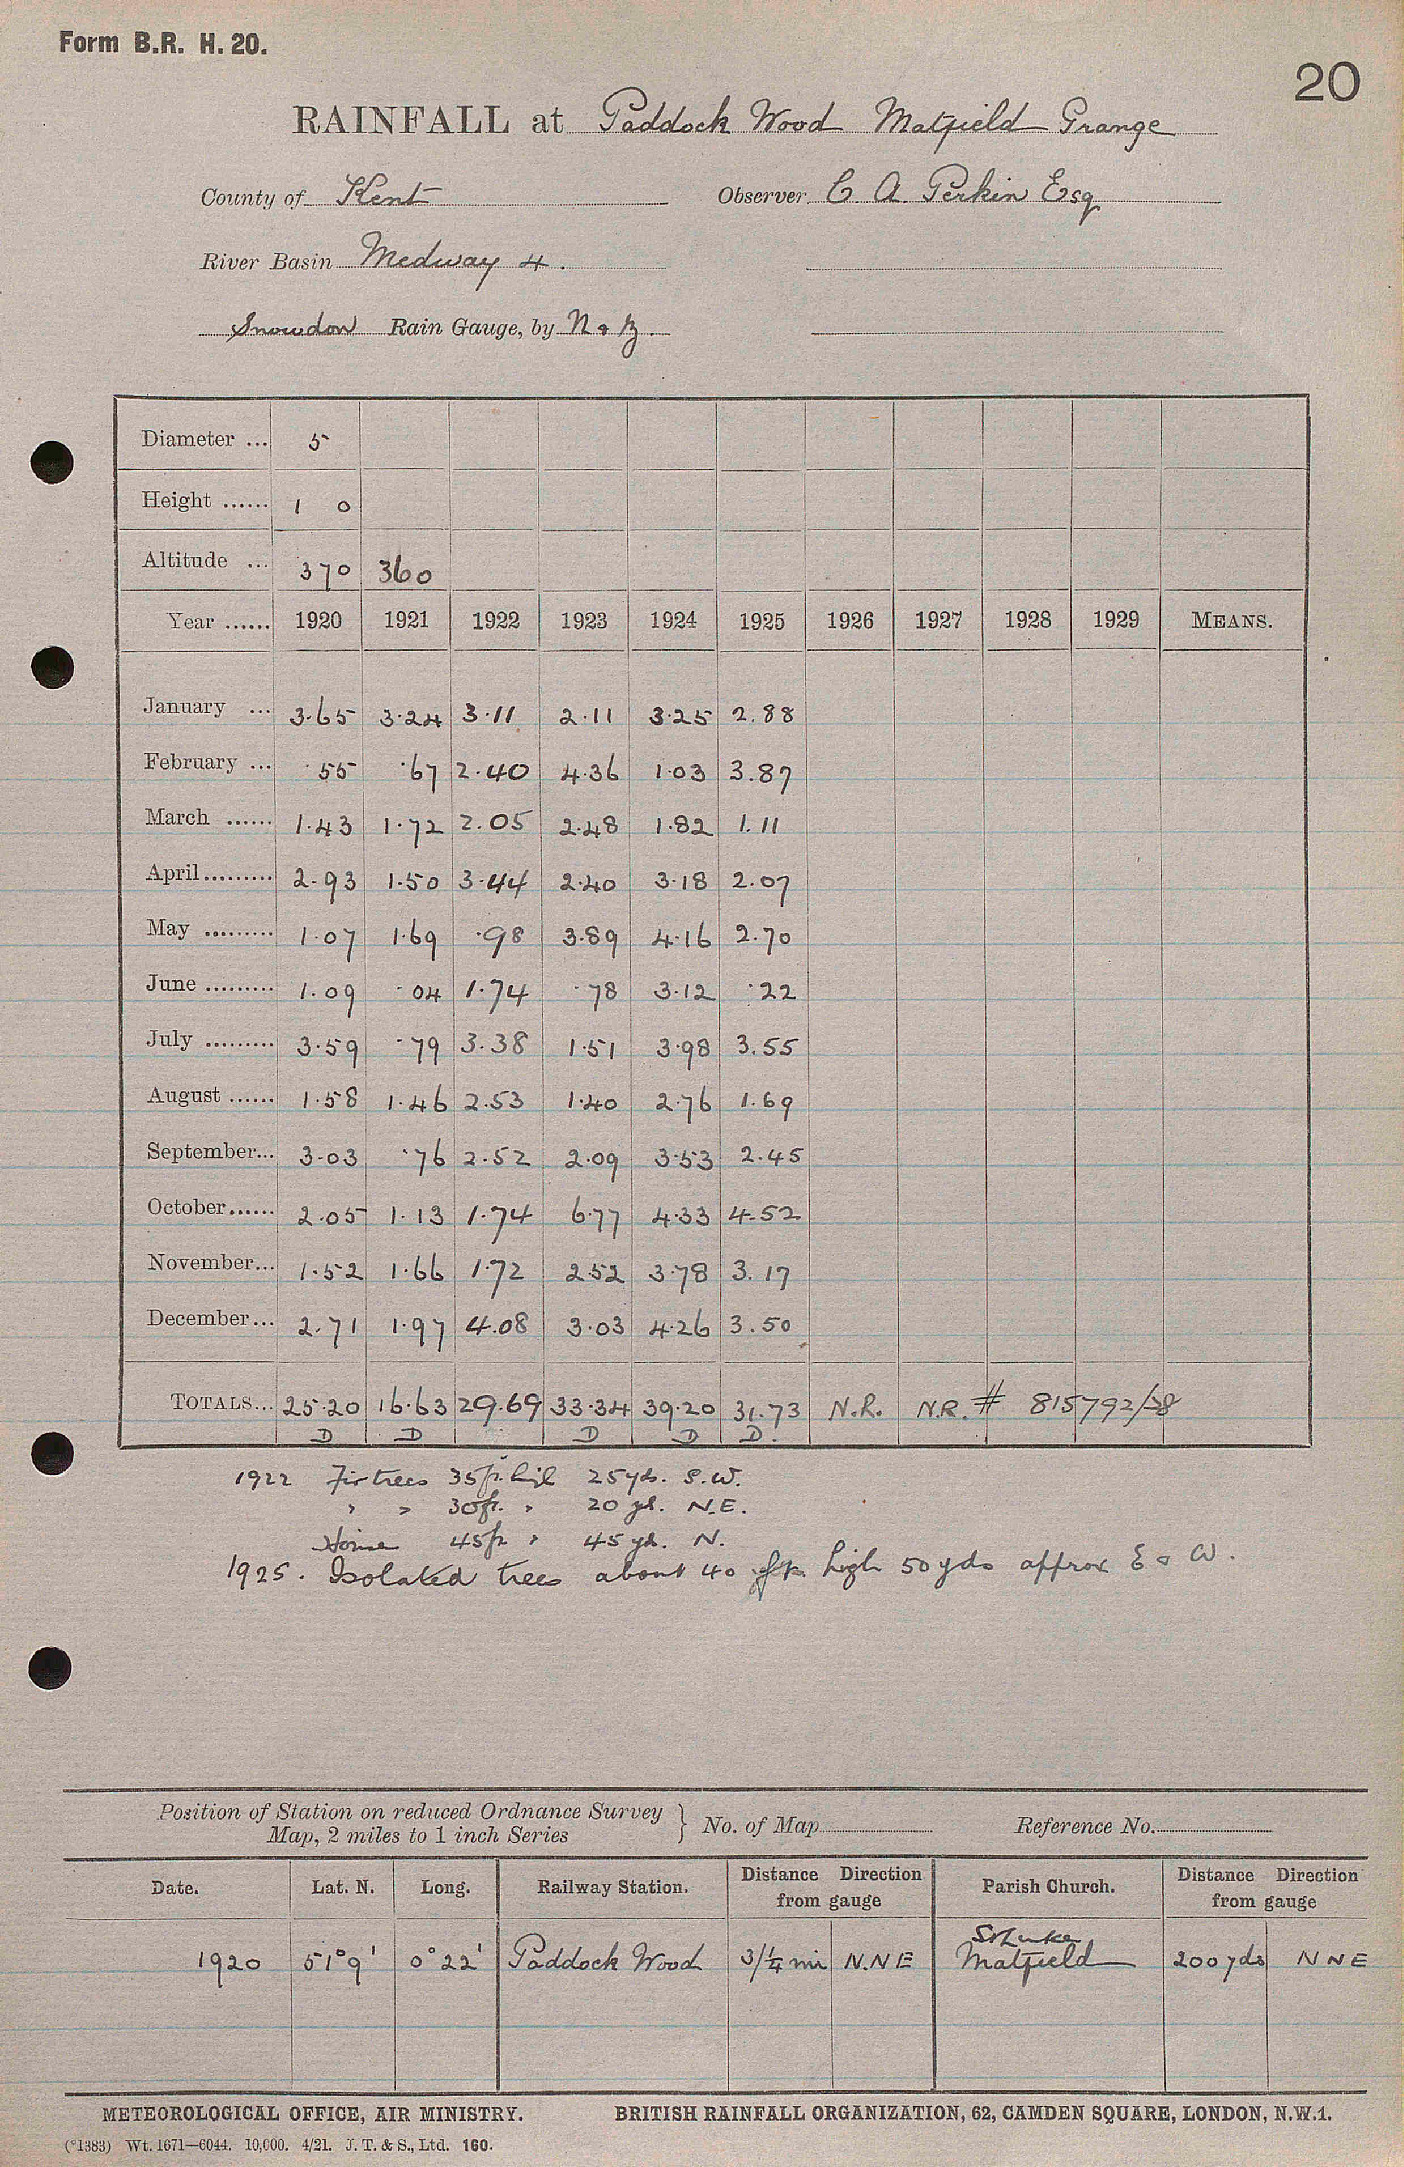 Form B.R. H. 20.
20
RAINFALL at Paddock Wood Matfield Grange
County of Kent Observer C. A. Perkin Esq
River Basin Medway 4.
Snowdon Rain Gauge, by N & Z.
Diameter ... 5
Height ...... 1 0
Altitude ... 370 360
Year ...... 1920 1921 1922 1923 1924 1925 1926 1927 1928 1929 MEANS.
January ... 3.65 3.24 3.11 2.11 3.25 2.88
February ... .55 .67 2.40 4.36 1.03 3.87
March ...... 1.43 1.72 2.05 2.48 1.82 1.11
April ......... 2.93 1.50 3.44 2.40 3.18 2.07
May ......... 1.07 1.69 .98 3.89 4.16 2.70
June ......... 1.09 .04 1.74 .78 3.12 .22
July ......... 3.59 .79 3.38 1.51 3.98 3.55
August ...... 1.58 1.46 2.53 1.40 2.76 1.69
September... 3.03 .76 2.52 2.09 3.53 2.45
October...... 2.05 1.13 1.74 6.77 4.33 4.52
November... 1.52 1.66 1.72 2.52 3.78 3.17
December... 2.71 1.97 4.08 3.03 4.26 3.50
TOTALS... 25.20 16.63 29.69 33.34 39.20 31.73 N.R. N.R. # 815792/28
D D D D D.
1922 Fir trees 35ft. high 25 yds. S.W.
" " 30ft. " 20 yd. N.E.
House 45ft " 45 yd. N.
1925. Isolated trees about 40 ft. high 50 yds approx E & W.
Position of Station on reduced Ordnance Survey Map, 2 miles to 1 inch Series } No. of Map Reference No.
Date. Lat. N. Long. Railway Station. Distance Direction from gauge Parish Church. Distance Direction from gauge
St Luke
1920 51° 9' 0° 22' Paddock Wood 3 1/4 mi N.N E Matfield 200 yds N N E
METEOROLOGICAL OFFICE, AIR MINISTRY. BRITISH RAINFALL ORGANIZATION, 62, CAMDEN SQUARE, LONDON, N.W.1.
(*1383) Wt. 1671—6044. 10,000. 4/21. J. T. & S., Ltd. 160.